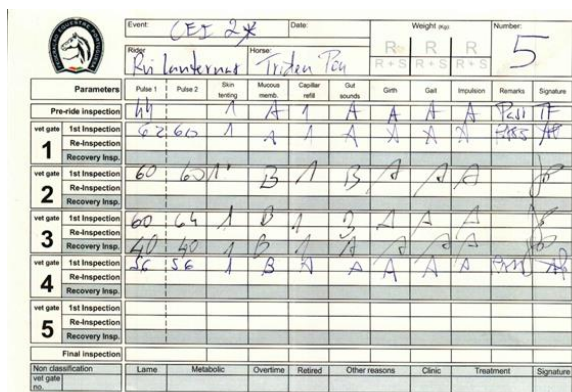 Event: CEI 2* Date: Weight (Kg) Number:
R R R
R+S R+S R+S
5
Rider Horse:
Parameters Pulse 1 Pulse 2 Skin tenting Mucous memb. Capillar refill Gut sounds Girth Gait Impulsion Remarks Signature
Pre-ride inspection 44 1 A 1 A A A A Pass
vet gate 1 1st Inspection 62 60 1 A 1 A A A A Pass
Re-Inspection
Recovery Insp.
vet gate 2 1st Inspection 60 60 1 B 1 B A A A
Re-Inspection
Recovery Insp.
vet gate 3 1st Inspection 60 64 1 B 1 B A A A
Re-Inspection
Recovery Insp. 40 40 1 B 1 A A A A
vet gate 4 1st Inspection 56 56 1 B A A A A A
Re-Inspection
Recovery Insp.
vet gate 5 1st Inspection
Re-Inspection
Recovery Insp.
Final inspection
Non classification Lame Metabolic Overtime Retired Other reasons Clinic Treatment Signature
vet gate no.